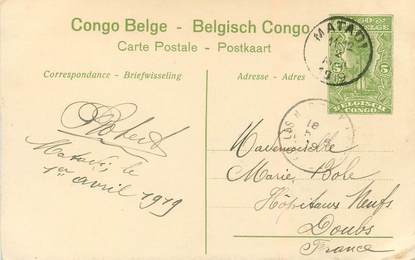 Congo Belge - Belgisch Congo
Carte Postale - Postkaart
Correspondance - Briefwisseling
Adresse - Adres
MATADI
1919
5
BELGISCH
CONGO
Robert
Matadi, le
1er avril 1919
Mademoiselle
Marie Bole
Hôpitaux Neufs
Doubs
France